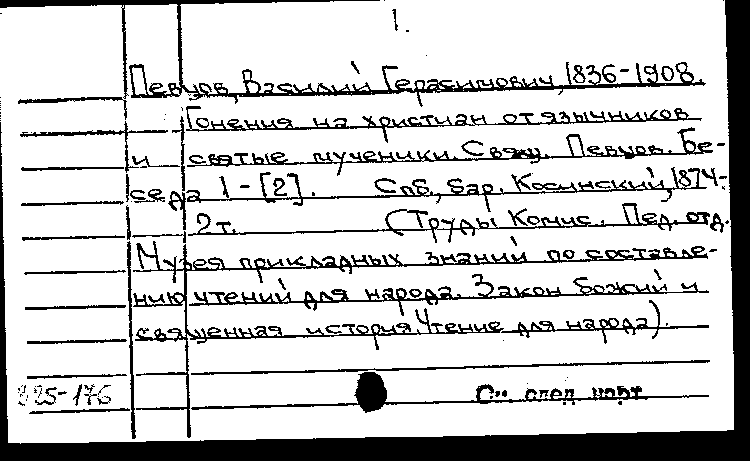 1.
Певцов, Василий Герасимович, 1836-1908.
Гонения на христиан от язычников
и святые мученики. Свящ. Певцов. Бе-
седа 1-[2]. Спб, бар. Косинский, 1874-
2т. (Труды Комис. Пед. отд.
Музея прикладных знаний по составле-
нию чтений для народа. Закон божий и
священная история. Чтение для народа).
825-176 См. след карт